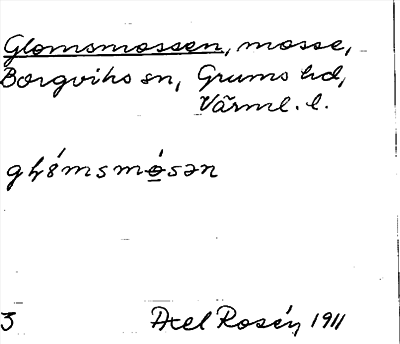 Glomsmossen, mosse,
Borgviks sn, Grums hd,
Värml. l.
3 Axel Rosén 1911